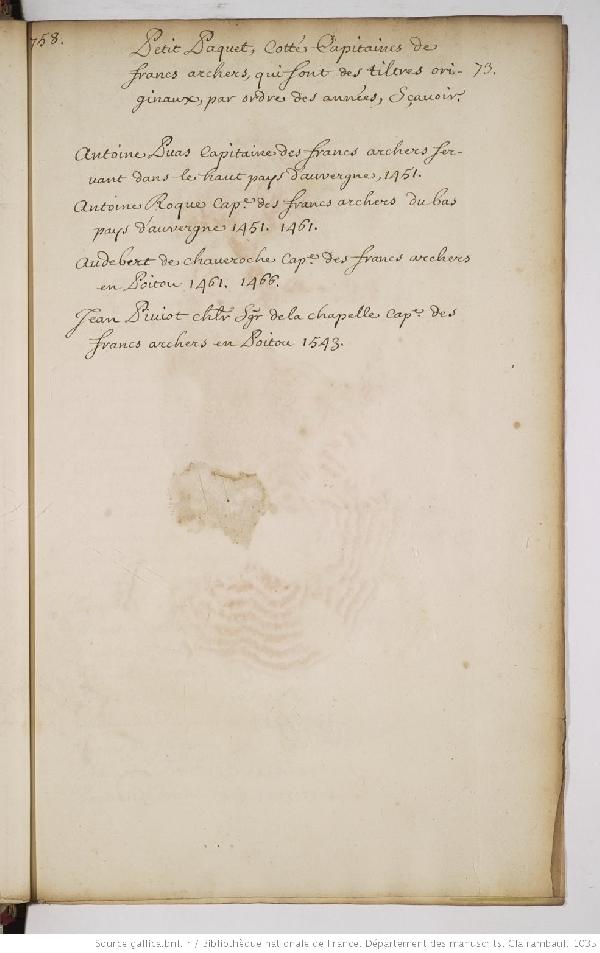 758.
Petit Paquet, Cotté Capitaines de
francs archers, qui sont des tiltres ori- 73.
ginaux, par ordre des années, Sçavoir.
Antoine Puas Capitaine des francs archers ser-
vant dans le haut pays d'auvergne, 1451.
Antoine Roque Cap.e des francs archers du bas
pays d'auvergne 1451. 1461.
Audebert de chaveroche Cap.e des francs archers
en Poitou 1461. 1466.
Jean Piviot chlr Sgr de la chapelle Cap.e des
francs archers en Poitou 1543.
Source gallica.bnf.fr / Bibliothèque nationale de France. Département des manuscrits. Clairambault 1035